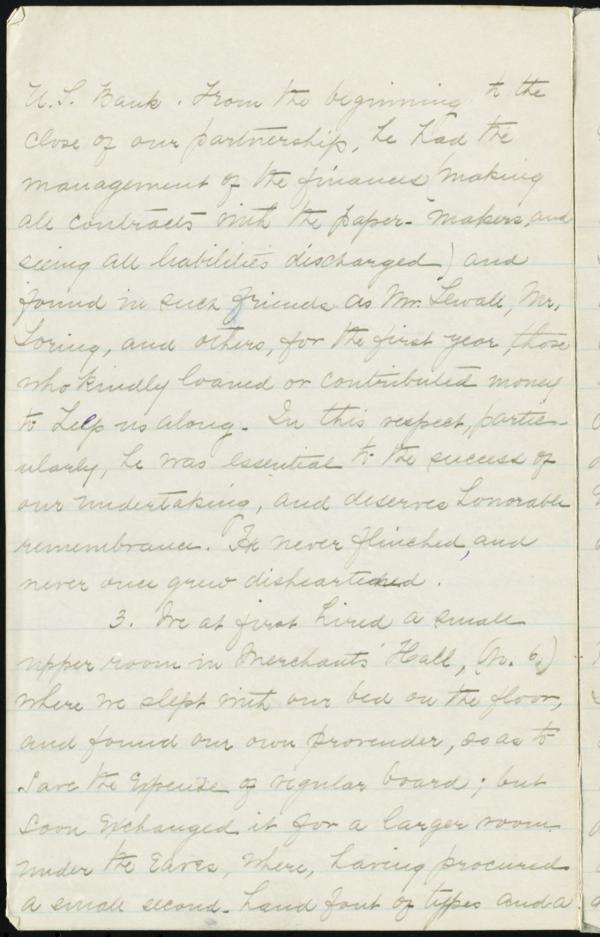 U.S. Bank. From the beginning to the
close of our partnership, he had the
management of the finances (making
all contracts with the paper-makers, and
seeing all liabilities discharged) and
found in such friends as Mr. Sewall, Mr.
Loring, and others, for the first year, those
who kindly loaned or contributed money
to help us along. In this respect, partic-
ularly, he was essential to the success of
our undertaking, and deserves honorable
remembrance. He never flinched, and
never once grew disheartened.
3. We at first hired a small
upper room in Merchants' Hall, (No. 6,)
where we slept with our bed on the floor,
and found our own provender, so as to
save the expense of regular board; but
soon exchanged it for a larger room
under the eaves, where, having procured
a small second-hand font of types and a